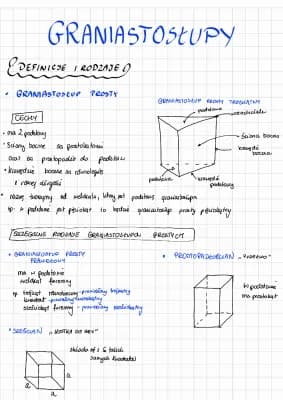 GRANIASTOSŁUPY
DEFINICJE I RODZAJE
• GRANIASTOSŁUP PROSTY
GRANIASTOSŁUP PROSTY TRÓJKĄTNY
podstawa
wierzchołek
CECHY
• ma 2 podstawy
• Ściany boczne są prostokątami
oraz są prostopadłe do podstaw
• krawędzie boczne są równoległe
i równej długości
ściana boczna
krawędź
boczna
podstawa
krawędź
podstawy
• nazwę bierzemy od wielokąta, który jest podstawą graniastosłupa
np. podstawą jest pięciokąt to będzie graniastosłup prosty pięciokątny
SZCZEGÓLNE RODZAJE GRANIASTOSŁUPÓW PROSTYCH
• GRANIASTOSŁUP PROSTY
PRAWIDŁOWY
ma w podstawie
wielokąt foremny
np. trójkąt równoboczny - prawidłowy trójkątny
kwadrat - prawidłowy czworokątny
sześciokąt foremny - prawidłowy sześciokątny
• PROSTOPADŁOŚCIAN
W podstawie
ma prostokąt
• SZEŚCIAN „KOSTKA DO GRY"
składa się z 6 takich
samych kwadratów
a
a
a